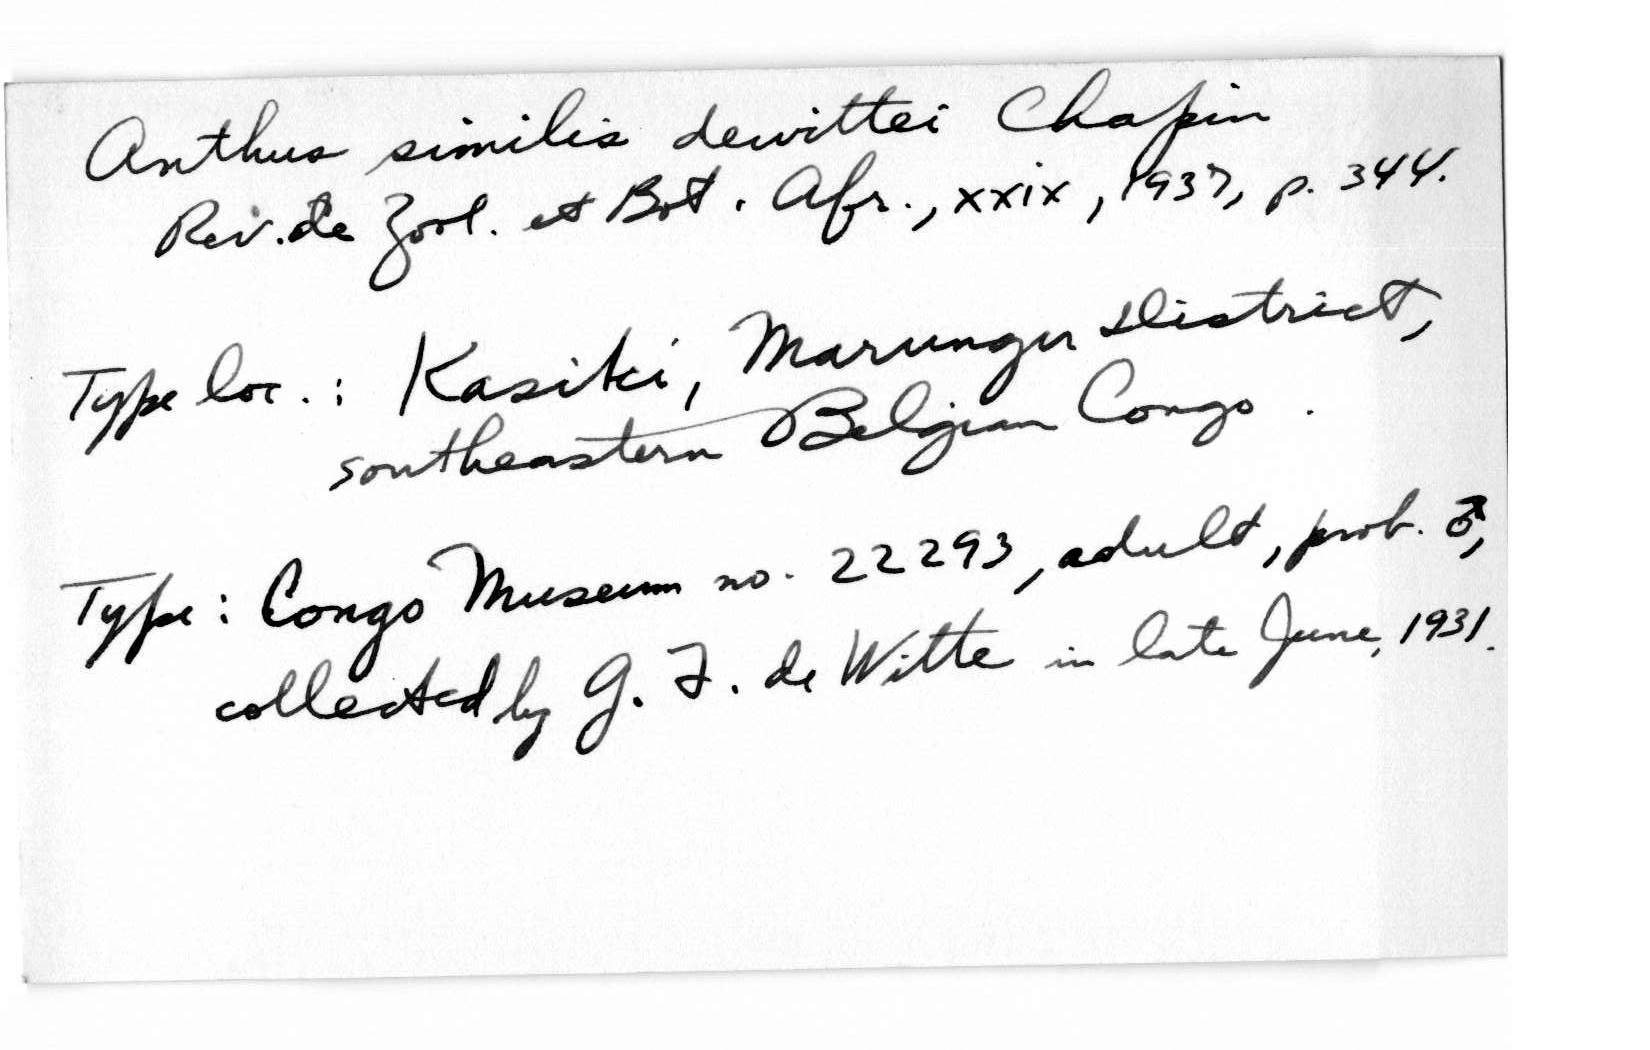 Anthus similis dewittei Chapin
Rev. de Zool. et Bot. Afr., xxix, 1937, p. 344.
Type loc.: Kasiki, Marungu District,
southeastern Belgian Congo.
Type: Congo Museum no. 22293, adult, prob. ♂,
collected by G. F. de Witte in late June, 1931.